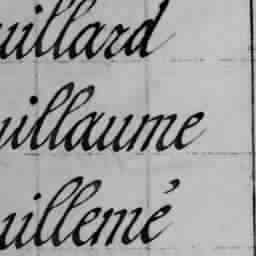 uillard
uillaume
uillemé